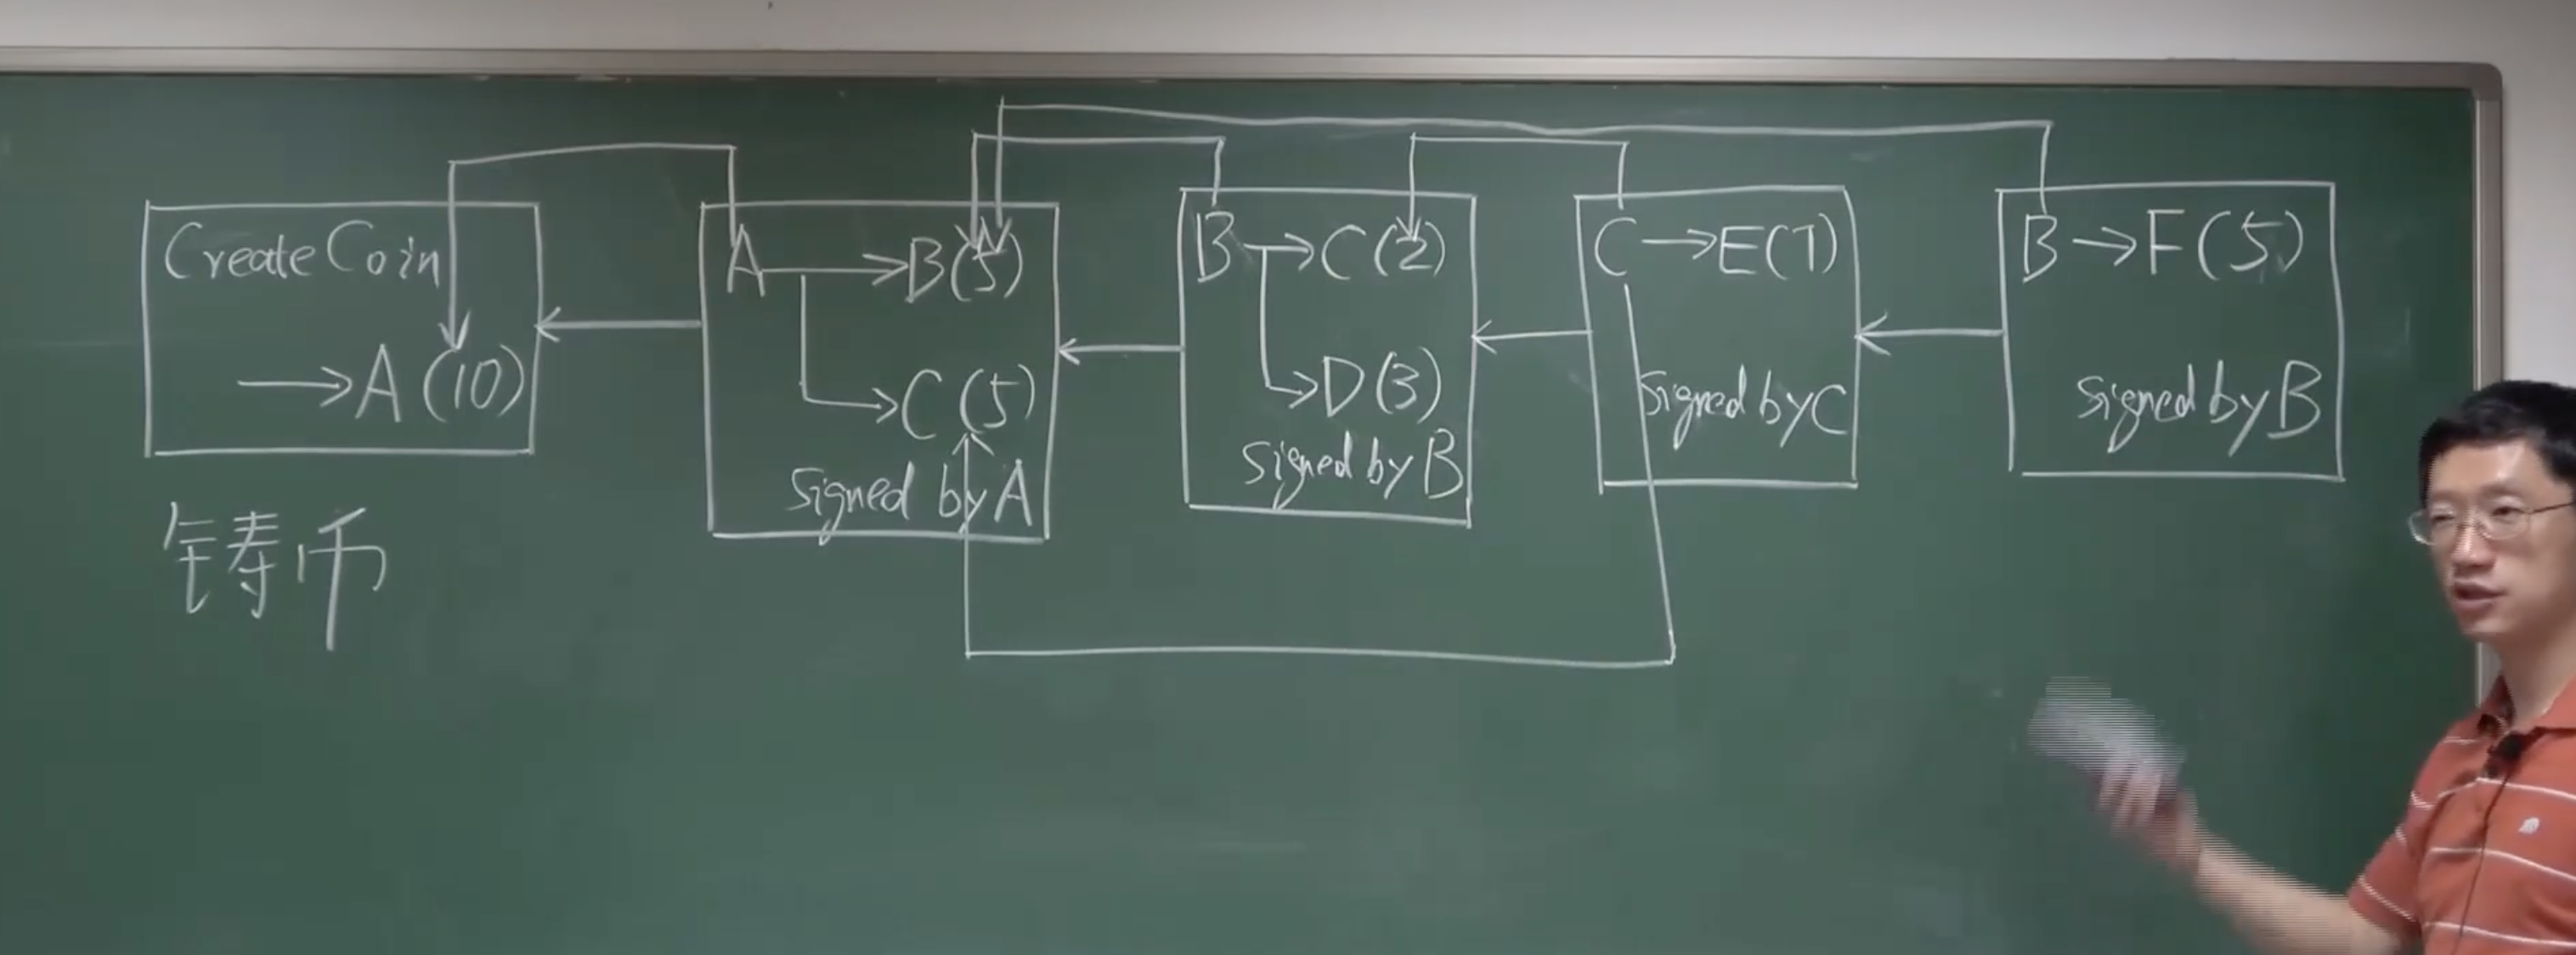 Create Coin
→A(10)
铸币
A→B(5)
→C(5)
signed by A
B→C(2)
→D(3)
signed by B
C→E(7)
signed by C
B→F(5)
signed by B